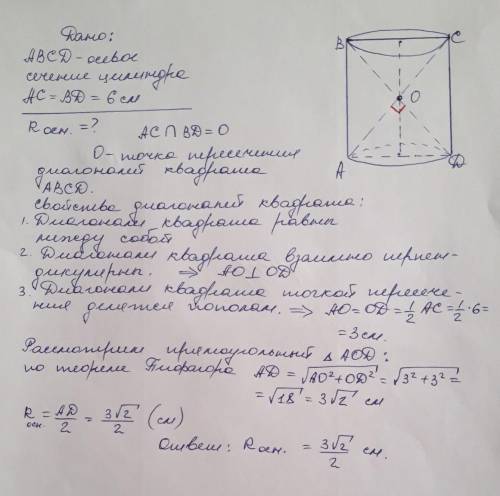 Дано:
ABCD - осевое
сечение цилиндра
AC = BD = 6 см
R осн. = ?
AC ∩ BD = O
O - точка пересечения
диагоналей квадрата
ABCD.
Свойства диагоналей квадрата:
1. Диагонали квадрата равны
между собой
2. Диагонали квадрата взаимно перпен-
дикулярны. ⇒ AO ⊥ OD
3. Диагонали квадрата точкой пересече-
ния делятся пополам. ⇒ AO = OD = 1/2 AC = 1/2 · 6 =
= 3 см.
Рассмотрим прямоугольный Δ AOD:
по теореме Пифагора AD = √(AO² + OD²) = √(3² + 3²) =
= √18 = 3√2 см
R осн. = AD/2 = 3√2/2 (см)
Ответ: R осн. = 3√2/2 см.
B
C
O
A
D